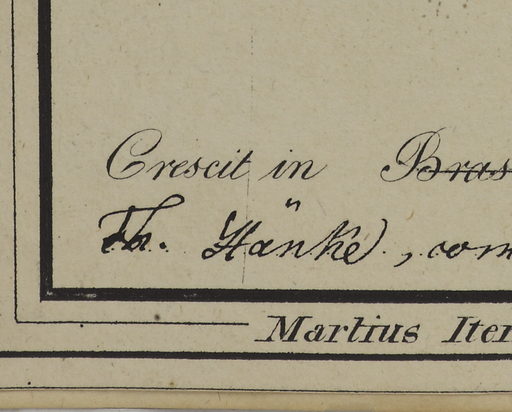 Crescit in Bras
Th. Hänke, com
Martius Iter